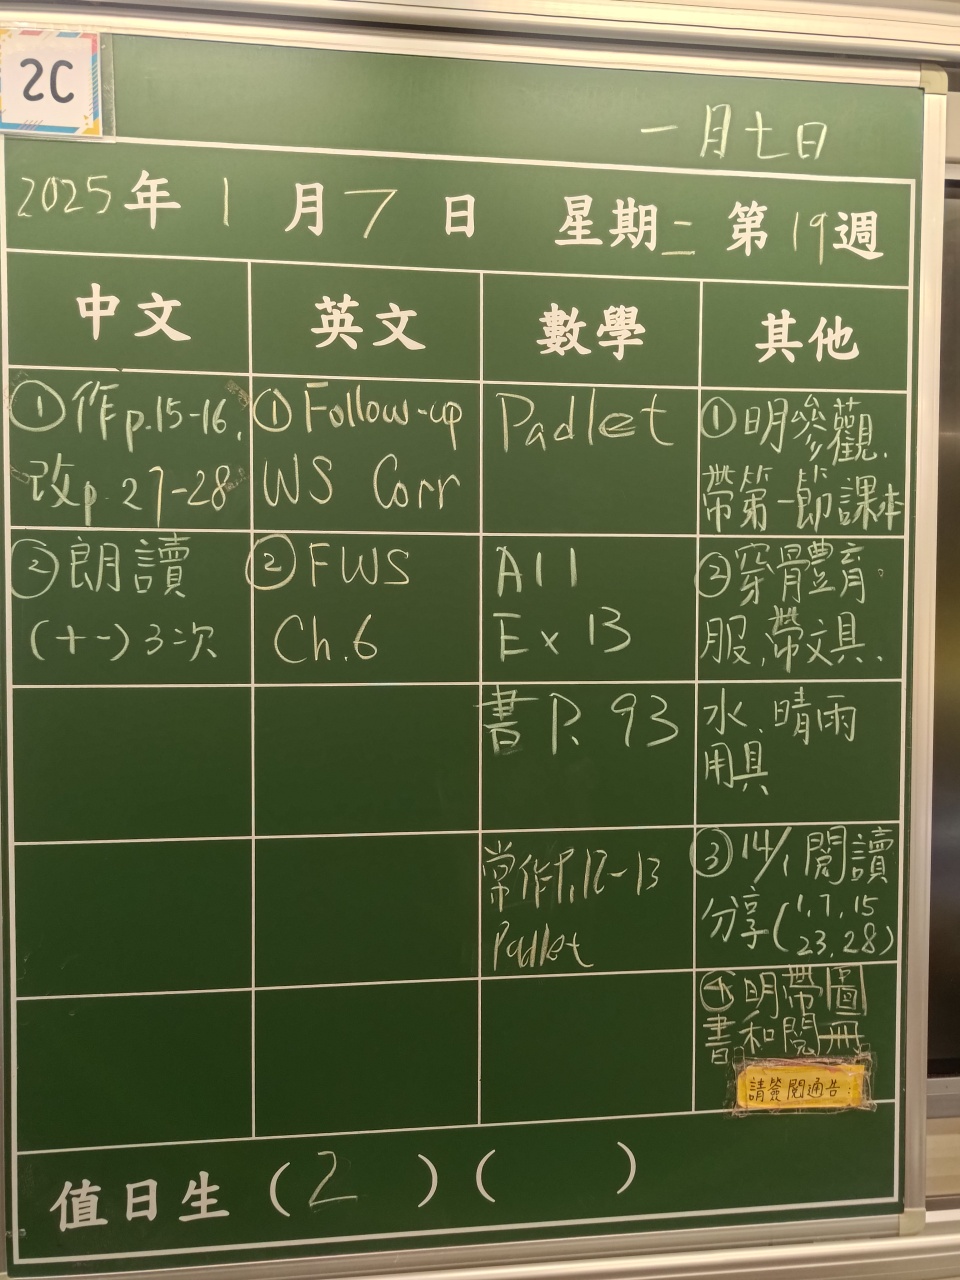 2C
一月七日
2025年1月7日 星期二 第19週
中文 英文 數學 其他
①作p.15-16,
改p.27-28
②朗讀
(十一)3次
①Follow-up
WS Corr
②FWS
Ch.6
Padlet
A11
Ex 13
書P. 93
常作P.12-13
Padlet
①明參觀.
帶第一節課本
②穿體育
服、帶文具、
水、晴雨
用具
③14/1閱讀
分享(1,7,15
23,28)
④明帶圖
書和閱冊
請簽閱通告.
值日生 (2) ( )